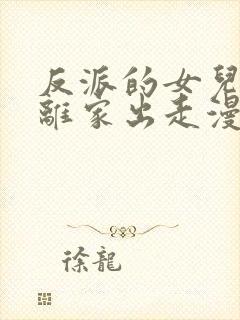 反派的女兒
離家出走漫
徐龍